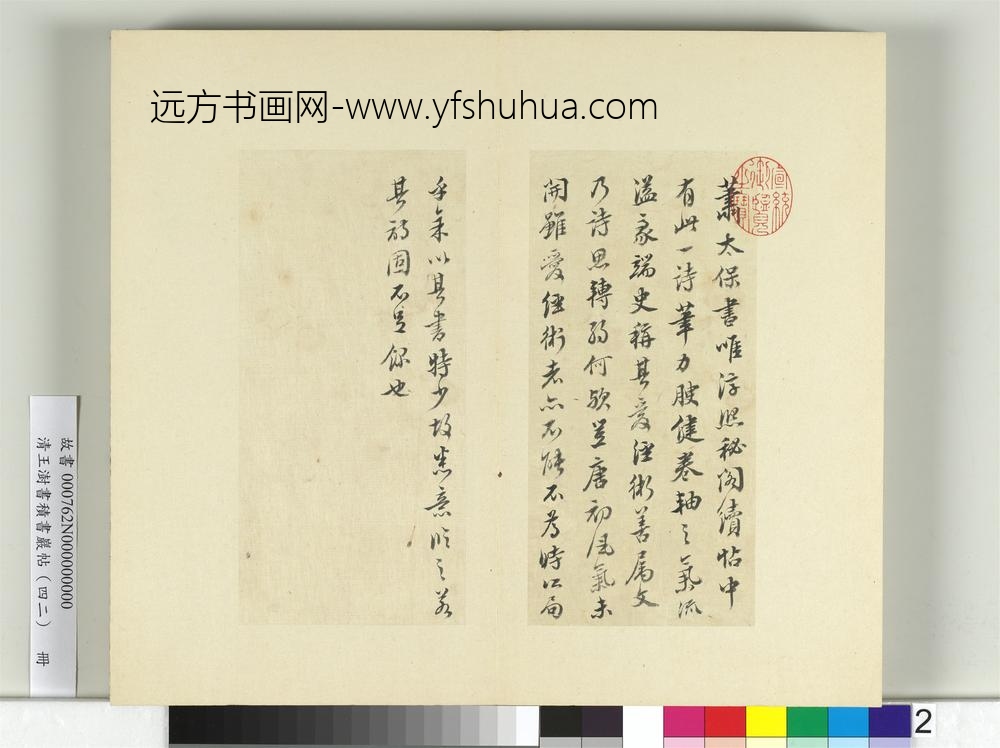 远方书画网-www.yfshuhua.com
宣統御覽之寶
蕭太保書唯淳熙秘閣續帖中
有此一詩筆力腴健卷軸之氣流
溢豪端史稱其愛經術善屬文
乃詩思轉弱何歟豈唐初風氣未
開雖愛經術者亦不能不為時公局
乎余以其書特少故悉意臨之若
其詩固不足錄也
故書 000762N000000000
清王澍書積書巖帖（四二） 冊
2